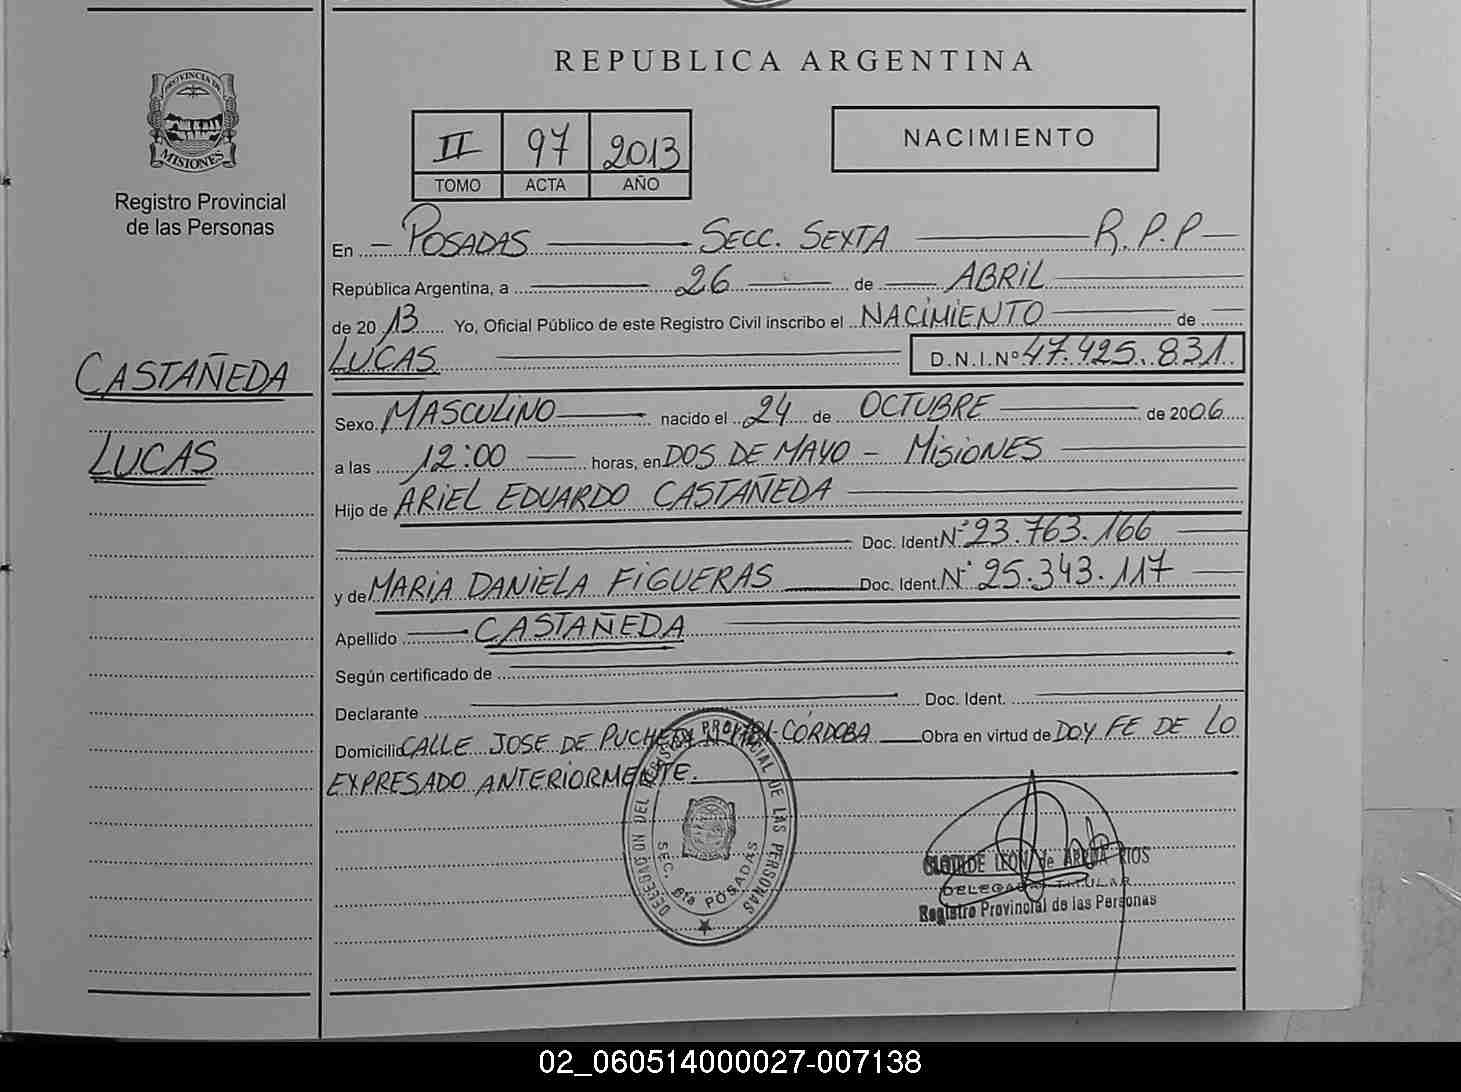 REPUBLICA ARGENTINA
PROVINCIA DE
MISIONES
Registro Provincial
de las Personas
II 97 2013
TOMO ACTA AÑO
NACIMIENTO
En POSADAS SECC. SEXTA R.P.P
República Argentina, a 26 de ABRIL
de 2013 Yo, Oficial Público de este Registro Civil inscribo el NACIMIENTO de
LUCAS D.N.I.Nº 47.425.831
CASTAÑEDA
LUCAS
Sexo MASCULINO nacido el 24 de OCTUBRE de 2006
a las 12:00 horas, en DOS DE MAYO - MISIONES
Hijo de ARIEL EDUARDO CASTAÑEDA
Doc. Ident Nº 23.763.166
y de MARIA DANIELA FIGUERAS Doc. Ident. Nº 25.343.117
Apellido CASTAÑEDA
Según certificado de
Declarante Doc. Ident.
Domicilio CALLE JOSE DE CÓRDOBA Obra en virtud de DOY FE DE LO
EXPRESADO ANTERIORMENTE.
DELEGACION DEL REGISTRO PROVINCIAL DE LAS PERSONAS
SEC. 6ta POSADAS
CLOTILDE LEON de RIOS
DELEGADA TITULAR
Registro Provincial de las Personas
02_060514000027-007138